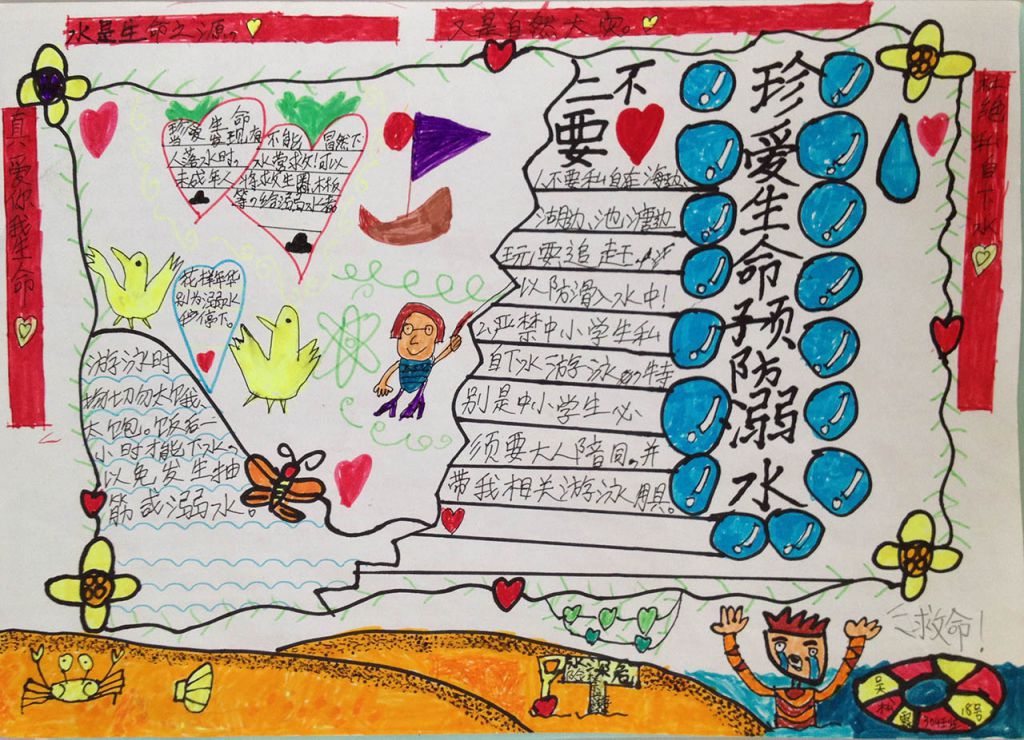 水是生命之源，
又是自然大灾。
真爱你我生命
杜绝私自下水
珍爱生命预防溺水
二不要
1不要私自在海边、
湖边、池塘边
玩耍追赶，
以防滑入水中！
2、严禁中小学生私
自下水游泳，特
别是中小学生必
须要大人陪同，并
带我相关游泳用具。
珍爱生命
发现有
人落水时，
未成年人
不能冒然下
水营救！可以
将救生圈、木板
等物给溺水者
花样年华
别为溺水
停下。
游泳时
切勿太饿、
太饱。饭后一
小时才能下水，
以免发生抽
筋或溺水。
救命！
18号